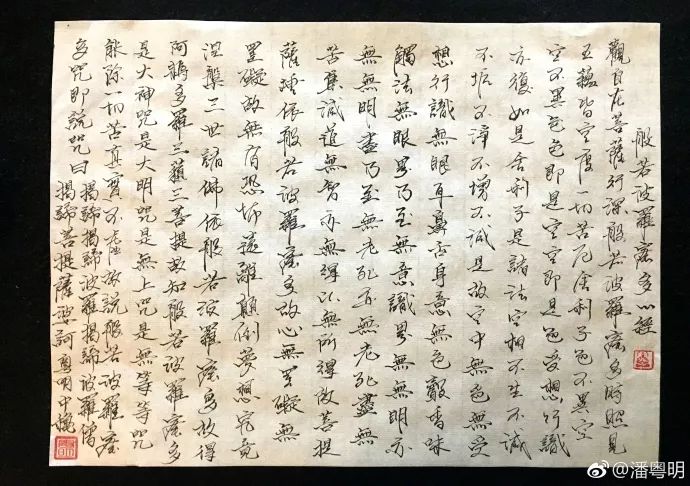 般若波羅蜜多心經
觀自在菩薩行深般若波羅蜜多時照見
五蘊皆空度一切苦厄舍利子色不異空
空不異色色即是空空即是色受想行識
亦復如是舍利子是諸法空相不生不滅
不垢不淨不增不減是故空中無色無受
想行識無眼耳鼻舌身意無色聲香味
觸法無眼界乃至無意識界無無明亦
無無明盡乃至無老死亦無老死盡無
苦集滅道無智亦無得以無所得故菩提
薩埵依般若波羅蜜多故心無罣礙無
罣礙故無有恐怖遠離顛倒夢想究竟
涅槃三世諸佛依般若波羅蜜多故得
阿耨多羅三藐三菩提故知般若波羅蜜多
是大神咒是大明咒是無上咒是無等等咒
能除一切苦真實不虛故說般若波羅蜜
多咒即說咒曰
揭諦揭諦波羅揭諦波羅僧
揭諦菩提薩婆訶 粵明
@潘粤明